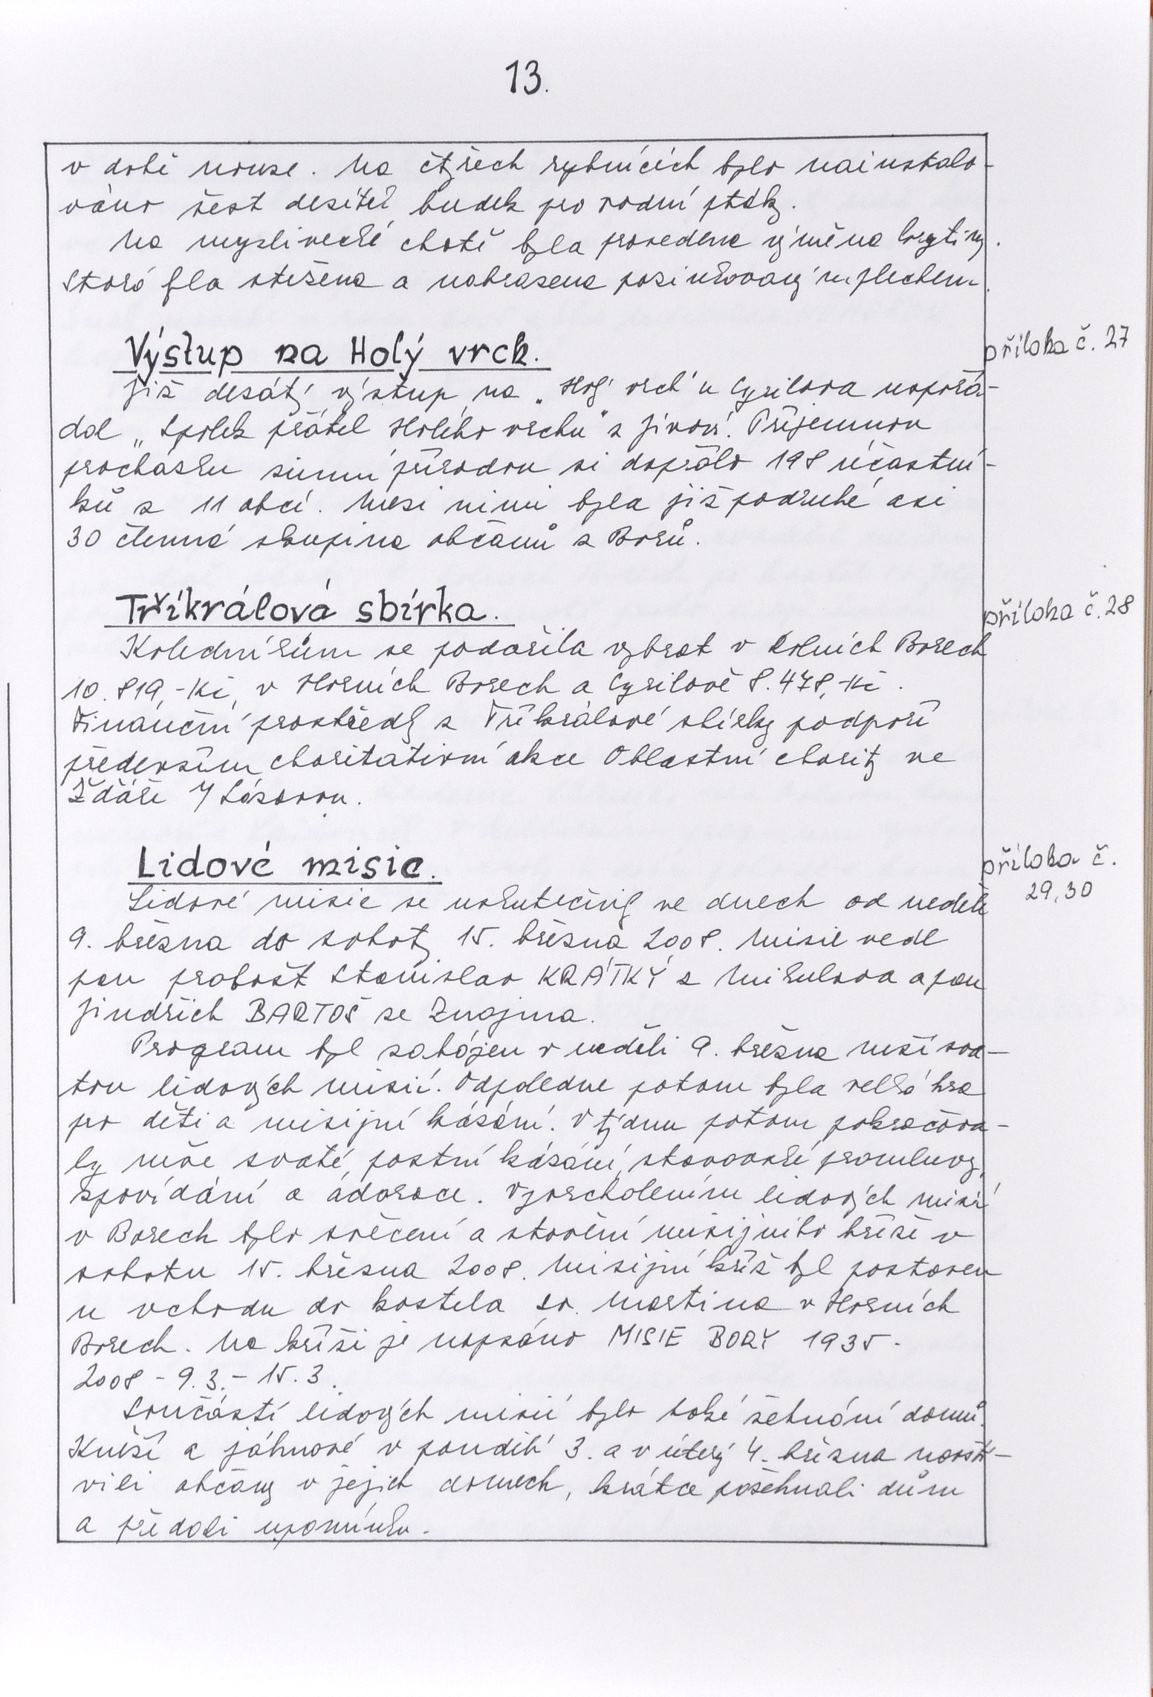 13.
v době nouze. Na čtyřech rybnících bylo nainstalo-
váno šest desítek budek pro vodní ptáky.
Na myslivecké chatě byla provedena výměna krytiny.
Stará byla stržena a nahrazena pozinkovaným plechem.
Výstup na Holý vrch.
příloha č. 27
Již desátý výstup na „Holý vrch" u Cyrilova uspořá-
dal „Spolek přátel Holého vrchu" z Jívoví. Příjemnou
procházku zimní přírodou si dopřálo 198 účastní-
ků z 11 obcí. Mezi nimi byla již podruhé asi
30 členná skupina občanů z Borů.
Tříkrálová sbírka.
příloha č. 28
Koledníkům se podařilo vybrat v Dolních Borech
10.819,-Kč, v Horních Borech a Cyrilově 8.478,-Kč.
Finanční prostředky z Tříkrálové sbírky podpoří
především charitativní akce Oblastní charity ve
Žďáře n/Sázavou.
Lidové misie.
příloha č.
29,30
Lidové misie se uskutečnily ve dnech od neděle
9. března do soboty 15. března 2008. Misie vedl
pan probošt Stanislav KRÁTKÝ z Mikulova a pan
Jindřich BARTOŠ ze Znojma.
Program byl zahájen v neděli 9. března mší sva-
tou lidových misií. Odpoledne potom byla velká hra
pro děti a misijní kázání. V týdnu potom pokračova-
ly mše svaté, postní kázání, stavovské promluvy,
zpovídání a adorace. Vyvrcholením lidových misií
v Borech bylo svěcení a stavění misijního kříže v
sobotu 15. března 2008. Misijní kříž byl postaven
u vchodu do kostela sv. Martina v Horních
Borech. Na kříži je napsáno MISIE BORY 1935.
2008 - 9.3.- 15.3.
Součástí lidových misií bylo také žehnání domů.
Kněží a jáhnové v pondělí 3. a v úterý 4. března navští-
vili občany v jejich domech, krátce požehnali dům
a předali upomínku.